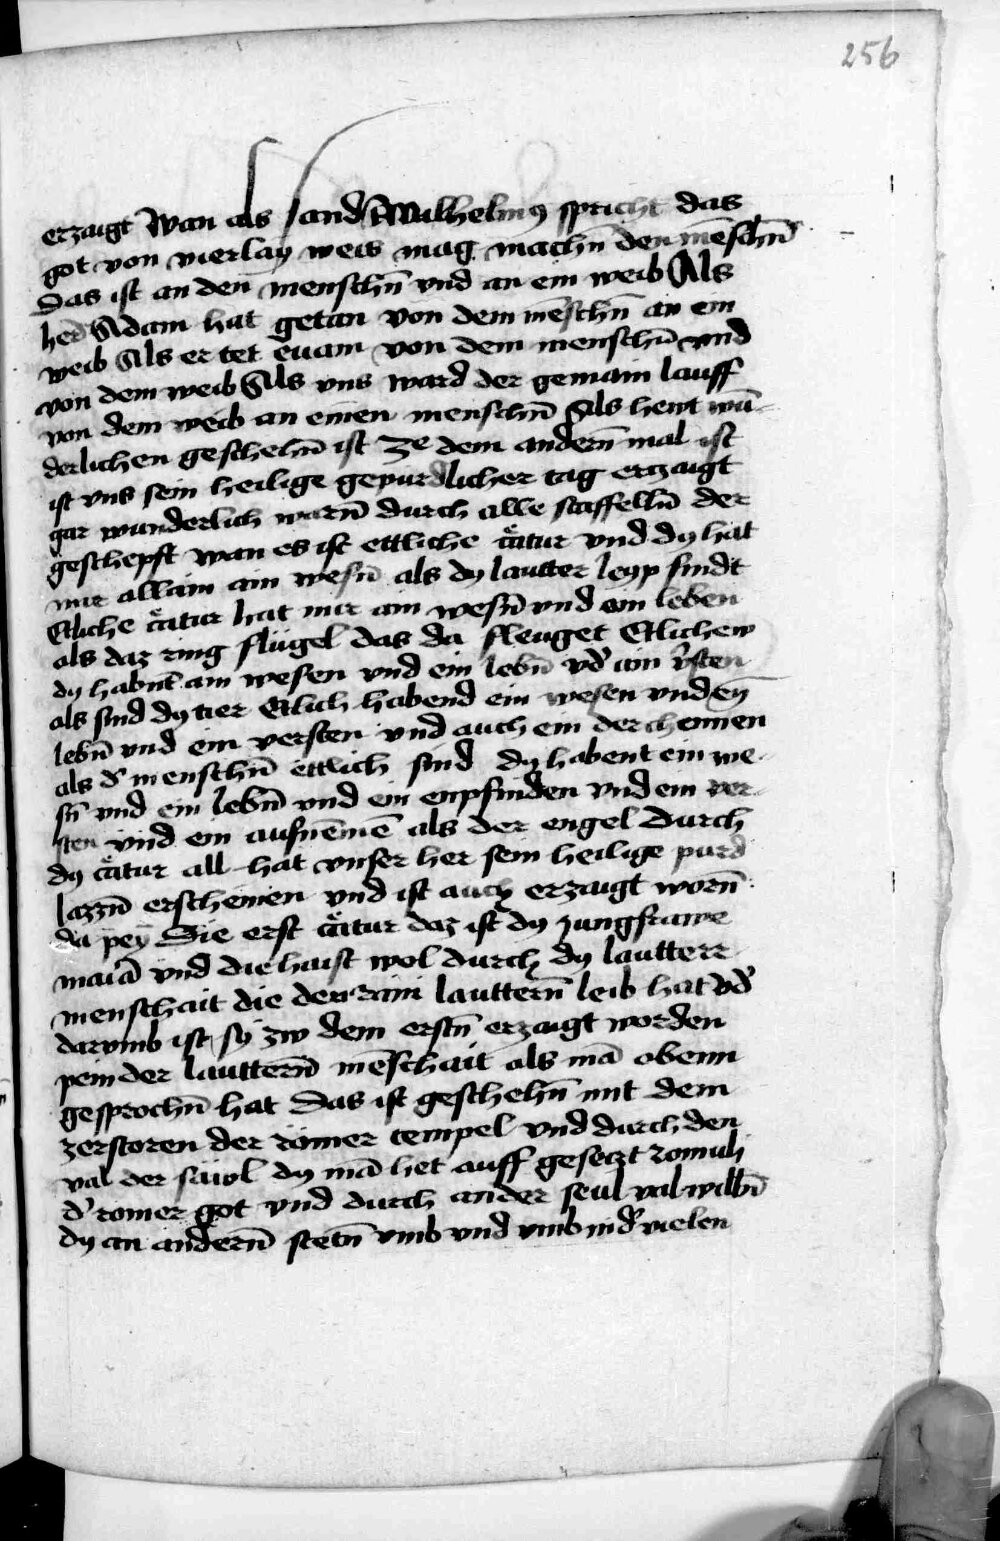 256
erzaigt Wan als sand Wilhelmꝯ spricht das
got von vierlay weis mag machn̄ den mēschn̄
Das ist an den menschn̄ vnd an ein weib Als
her Adam hat getan von dem mēschn̄ an ein
weib Als er tet euam von dem menschn̄ vnd
von dem weib Als vns ward der gemain lauff
von dem weib an einen menschn̄ Als hewt wū-
derlichen geschehn̄ ist Ze dem andern̄ mal ist
ist vns sein heilige gepurdlicher tag erczaigt
gar wunderlich warn̄ durch alle staffelln̄ der
geschepft wan es ist ettliche c̃atur vnd dy hat
nur allain ain wesn̄ als dy lautter leyp sindt
Etliche c̃atur hat nur ain wesn̄ vnd ein leben
als daz ring flügel das da fleuget Etlichew
dy habnt ain wesen vnd ein lebn̄ vd̕ ain v̕sten
als sind dy tier Etlich habend ein wesen vnd eȳ
lebn̄ vnd ein versten vnd auch ein derchennen
als d̕ menschn̄ ettlich sind dy habent ein we-
sn̄ vnd ein lebn̄ vnd ein enpfinden vnd ein ver-
sten vnd ein aufnēmē als der engel Durch
dy c̃atur all hat vnser her sein heilige purd
lazzn̄ erscheinen vnd ist auch erzaigt worn̄
da peȳ Die erst c̃atur daz ist dy Jungfrawe
maiā vnd die haist wol durch dy lautterr
menschait die den rain lauttern̄ leib hat vd̕
darvmb ist sy zw dem erstn̄ erzaigt worden
pein der lauttern̄ mēschait als mā obenn
gesprochn̄ hat Das ist geschehn̄ mit dem
zerstoren der römer tempel vnd durch den
val der sawl dy mā het auff gesetzt romuli
d̕ romer got vnd durch ander seul val willn̄
dy an andern̄ stetn̄ vmb vnd vmb nid̕ vielen